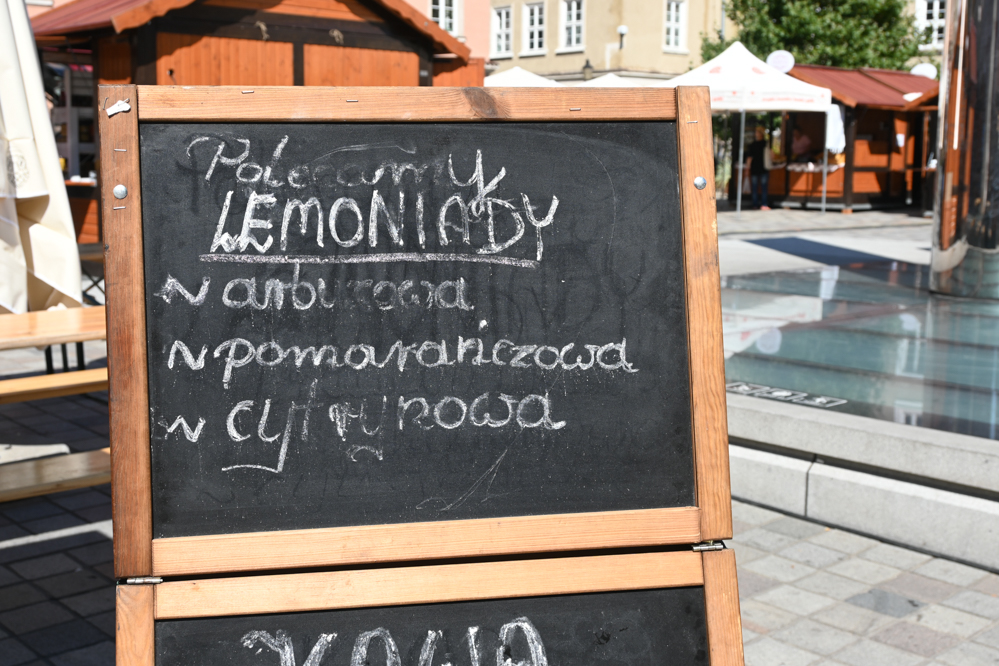 Polecamy
LEMONIADY
~ arbuzowa
~ pomarańczowa
~ cytrynowa
KAWA